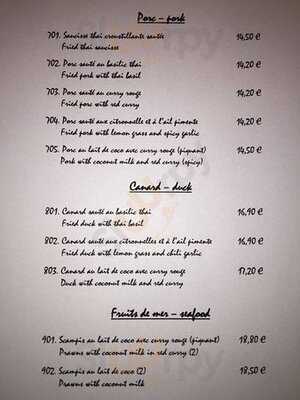 Porc – pork
701. Saucisse thai croustillante sautée 14,50 €
Fried thai saucisse
702. Porc sauté au basilic thai 14,20 €
Fried pork with thai basil
703. Porc sauté au curry rouge 14,20 €
Fried porc with red curry
704. Porc sauté aux citronnelle et à l'ail pimente 14,20 €
Fried pork with lemon grass and spicy garlic
705. Porc au lait de coco avec curry rouge (piquant) 14,50 €
Pork with coconut milk and red curry (spicy)
Canard – duck
801. Canard sauté au basilic thai 16,90 €
Fried duck with thai basil
802. Canard sauté aux citronnelles et à l'ail pimente 16,90 €
Fried duck with lemon grass and chili garlic
803. Canard au lait de coco avec curry rouge 17,20 €
Duck with coconut milk and red curry
Fruits de mer – seafood
901. Scampis au lait de coco avec curry rouge (piquant) 18,80 €
Prawns with coconut milk in red curry (2)
902. Scampis au lait de coco (2) 18,50 €
Prawns with coconut milk